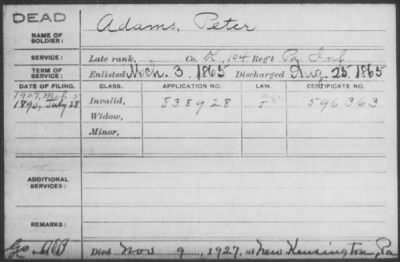 DEAD
Adams, Peter
NAME OF SOLDIER:
SERVICE: Late rank, Co. K, 104 Reg't Pa Inf
TERM OF SERVICE: Enlisted Mch. 3, 1865 Discharged Aug. 25, 1865
DATE OF FILING. CLASS. APPLICATION NO. CERTIFICATE NO.
1907, Mch 5
1890, July 28 Invalid, 838928 596363
Widow,
Minor,
ADDITIONAL SERVICES:
REMARKS:
Died Nov 9, 1927, at New Kensington, Pa